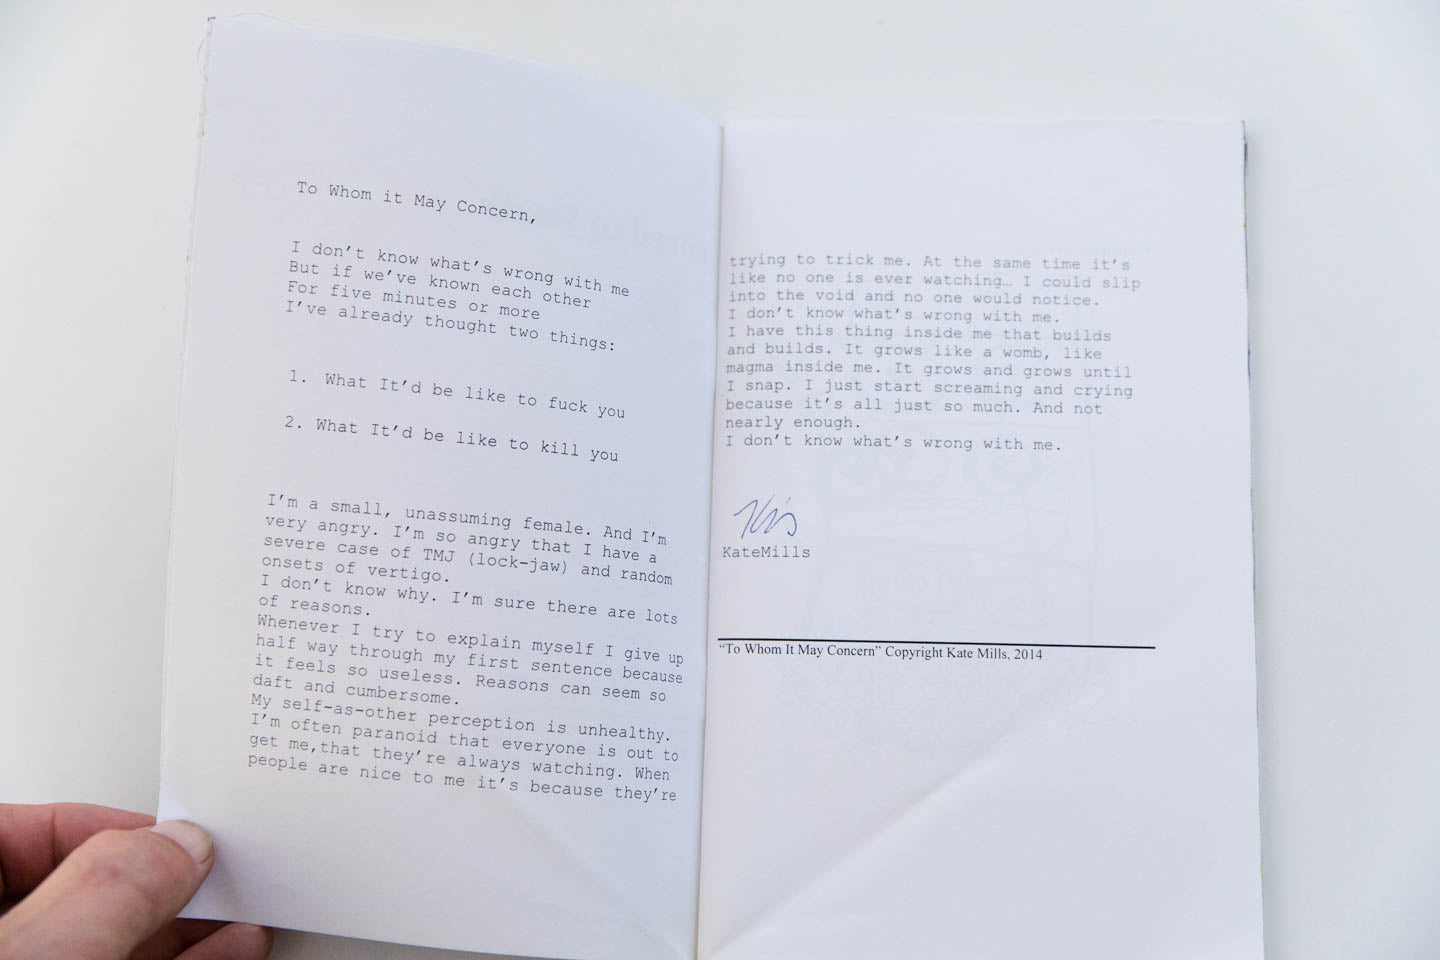 To Whom it May Concern,
I don't know what's wrong with me
But if we've known each other
For five minutes or more
I've already thought two things:
1. What It'd be like to fuck you
2. What It'd be like to kill you
I'm a small, unassuming female. And I'm
very angry. I'm so angry that I have a
severe case of TMJ (lock-jaw) and random
onsets of vertigo.
I don't know why. I'm sure there are lots
of reasons.
Whenever I try to explain myself I give up
half way through my first sentence because
it feels so useless. Reasons can seem so
daft and cumbersome.
My self-as-other perception is unhealthy.
I'm often paranoid that everyone is out to
get me,that they're always watching. When
people are nice to me it's because they're
trying to trick me. At the same time it's
like no one is ever watching… I could slip
into the void and no one would notice.
I don't know what's wrong with me.
I have this thing inside me that builds
and builds. It grows like a womb, like
magma inside me. It grows and grows until
I snap. I just start screaming and crying
because it's all just so much. And not
nearly enough.
I don't know what's wrong with me.
KateMills
"To Whom It May Concern" Copyright Kate Mills, 2014